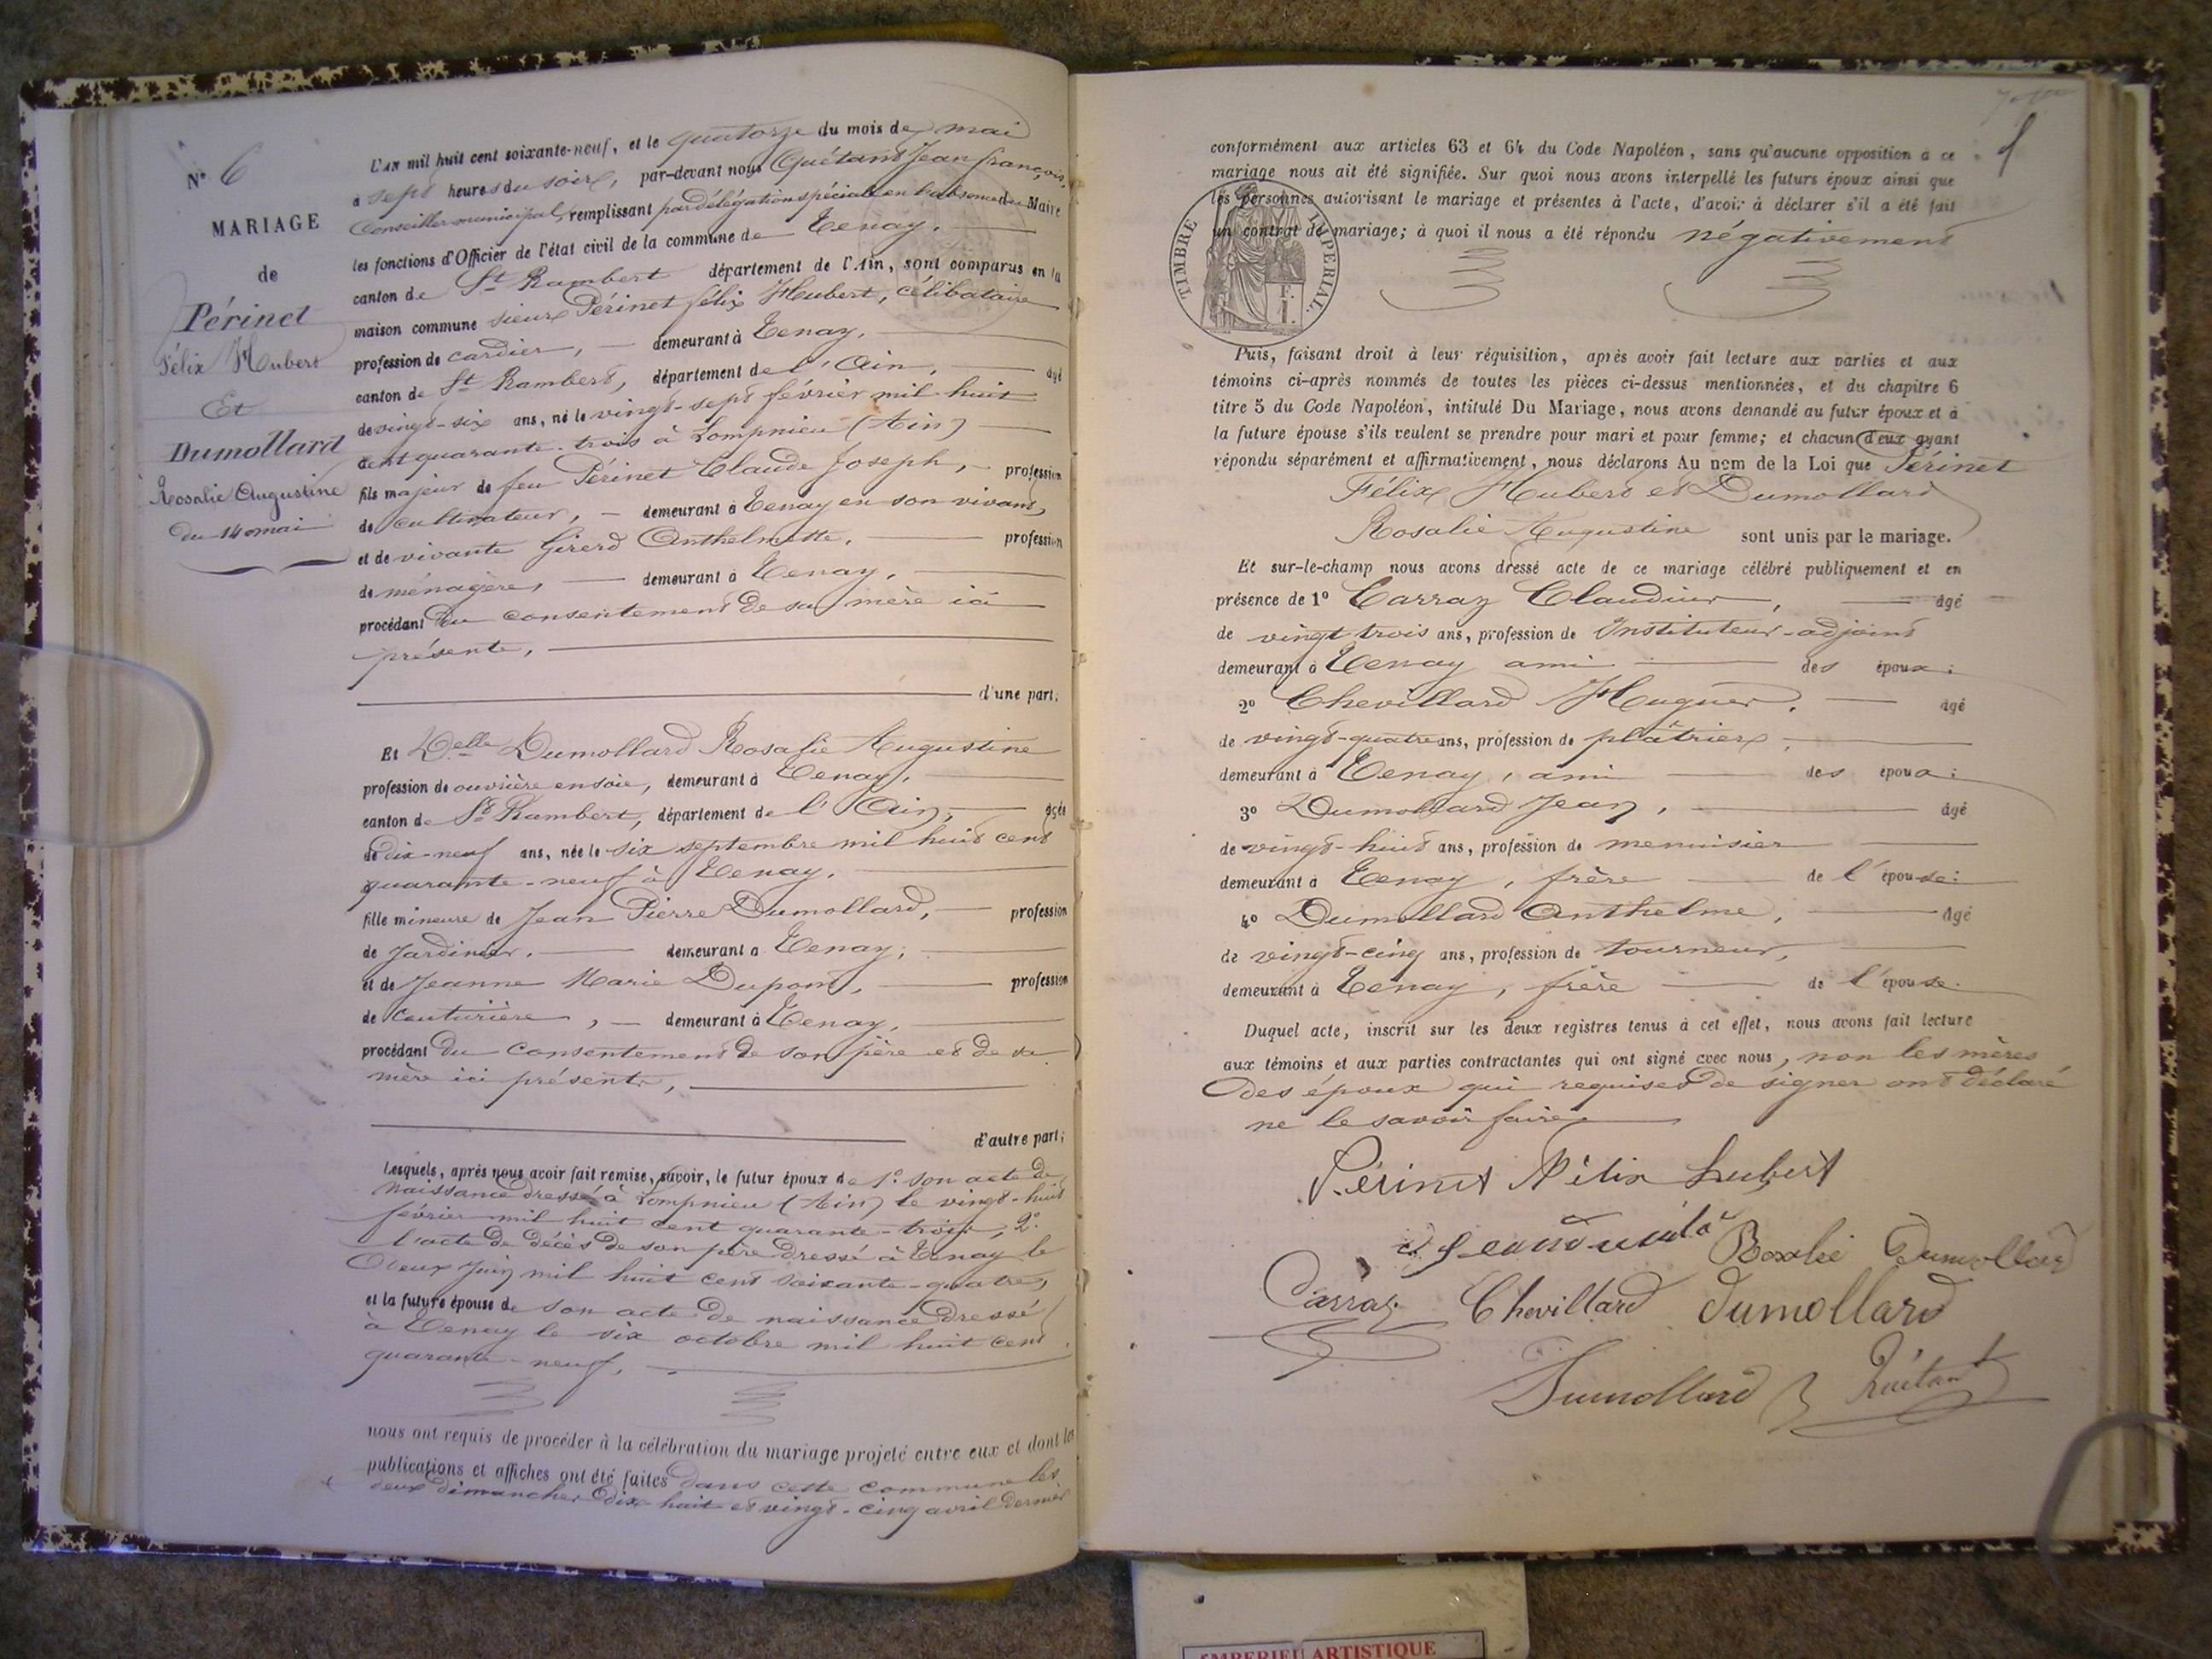 N° 6
MARIAGE
de
Périnet
Félix Hubert
Et
Dumollard
Rosalie Augustine
du 14 mai
L'an mil huit cent soixante-neuf, et le quatorze du mois de mai
à sept heures du soir, par-devant nous Quétant Jean françois,
Conseiller municipal, remplissant par délégation spéciale en l'absence du Maire
les fonctions d'Officier de l'état civil de la commune de Tenay.
canton de St Rambert département de l'Ain, sont comparus en la
maison commune sieur Périnet félix Hubert, célibataire
profession de cardier, demeurant à Tenay,
canton de St Rambert, département de l'Ain, âgé
de vingt-six ans, né le vingt-sept février mil huit
cent quarante-trois à Lompnieu (Ain)
fils majeur de feu Périnet Claude Joseph, profession
de cultivateur, demeurant à Tenay en son vivant,
et de vivante Girerd Anthelmette, profession
de ménagère, demeurant à Tenay,
procédant du consentement de sa mère ici
présente,
d'une part;
Et Delle Dumollard Rosalie Augustine
profession de ouvrière en soie, demeurant à Tenay,
canton de St Rambert, département de l'Ain, âgée
de dix-neuf ans, née le six septembre mil huit cent
quarante-neuf à Tenay.
fille mineure de Jean Pierre Dumollard, profession
de Jardinier, demeurant à Tenay;
et de Jeanne Marie Dupont, profession
de couturière, demeurant à Tenay,
procédant du consentement de son père et de sa
mère ici présents,
d'autre part;
Lesquels, après nous avoir fait remise, savoir, le futur époux de 1° son acte de
naissance dressé à Lompnieu (Ain) le vingt-huit
février mil huit cent quarante-trois, 2°
l'acte de décès de son père dressé à Tenay le
deux Juin mil huit cent soixante-quatre,
et la future épouse de son acte de naissance dressé
à Tenay le six octobre mil huit cent
quarante-neuf,
nous ont requis de procéder à la célébration du mariage projeté entre eux et dont les
publications et affiches ont été faites dans cette commune les
deux dimanches dix huit et vingt-cinq avril dernier
conformément aux articles 63 et 64 du Code Napoléon, sans qu'aucune opposition à ce
mariage nous ait été signifiée. Sur quoi nous avons interpellé les futurs époux ainsi que
les personnes autorisant le mariage et présentes à l'acte, d'avoir à déclarer s'il a été fait
un contrat de mariage; à quoi il nous a été répondu négativement
TIMBRE IMPÉRIAL.
Puis, faisant droit à leur réquisition, après avoir fait lecture aux parties et aux
témoins ci-après nommés de toutes les pièces ci-dessus mentionnées, et du chapitre 6
titre 5 du Code Napoléon, intitulé Du Mariage, nous avons demandé au futur époux et à
la future épouse s'ils veulent se prendre pour mari et pour femme; et chacun d'eux ayant
répondu séparément et affirmativement, nous déclarons Au nom de la Loi que Périnet
Félix Hubert et Dumollard
Rosalie Augustine sont unis par le mariage.
Et sur-le-champ nous avons dressé acte de ce mariage célébré publiquement et en
présence de 1° Carraz Claudius, âgé
de vingt trois ans, profession de Instituteur-adjoint
demeurant à Tenay ami des époux;
2° Chevillard Hugues, âgé
de vingt-quatre ans, profession de plâtrier,
demeurant à Tenay, ami des époux;
3° Dumollard Jean, âgé
de vingt-huit ans, profession de menuisier
demeurant à Tenay, frère de l'épouse;
4° Dumollard Anthelme, âgé
de vingt-cinq ans, profession de tourneur,
demeurant à Tenay, frère de l'épouse.
Duquel acte, inscrit sur les deux registres tenus à cet effet, nous avons fait lecture
aux témoins et aux parties contractantes qui ont signé avec nous, non les mères
des époux qui requises de signer ont déclaré
ne le savoir faire
Périnet Félix hubert
Rosalie Dumollard
Carraz Chevillard Dumollard
Dumollard Quétant
AMBERIEU ARTISTIQUE